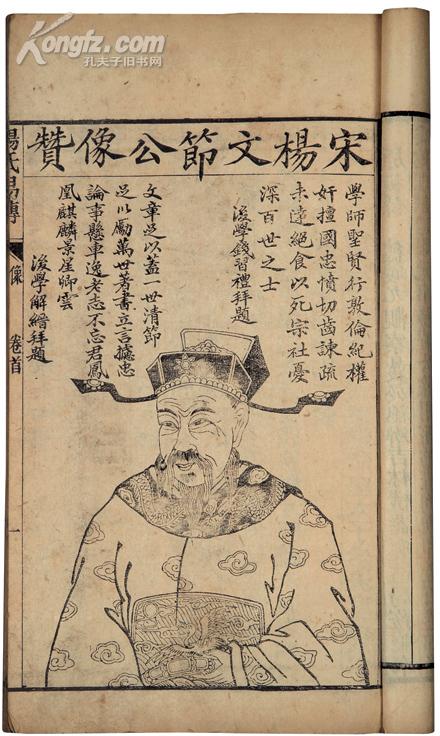 Kongfz.com
孔夫子旧书网
宋楊文節公像贊
學師聖賢行敦倫紀權
奸擅國忠憤切齒諫疏
未達絕食以死宗社憂
深百世之士
後學錢習禮拜題
文章足以蓋一世清節
足以勵萬世著書立言攄忠
論事懸車逸老志不忘君鳳
凰麒麟景星卿雲
後學解縉拜題
楊氏易傳
像
卷首
一